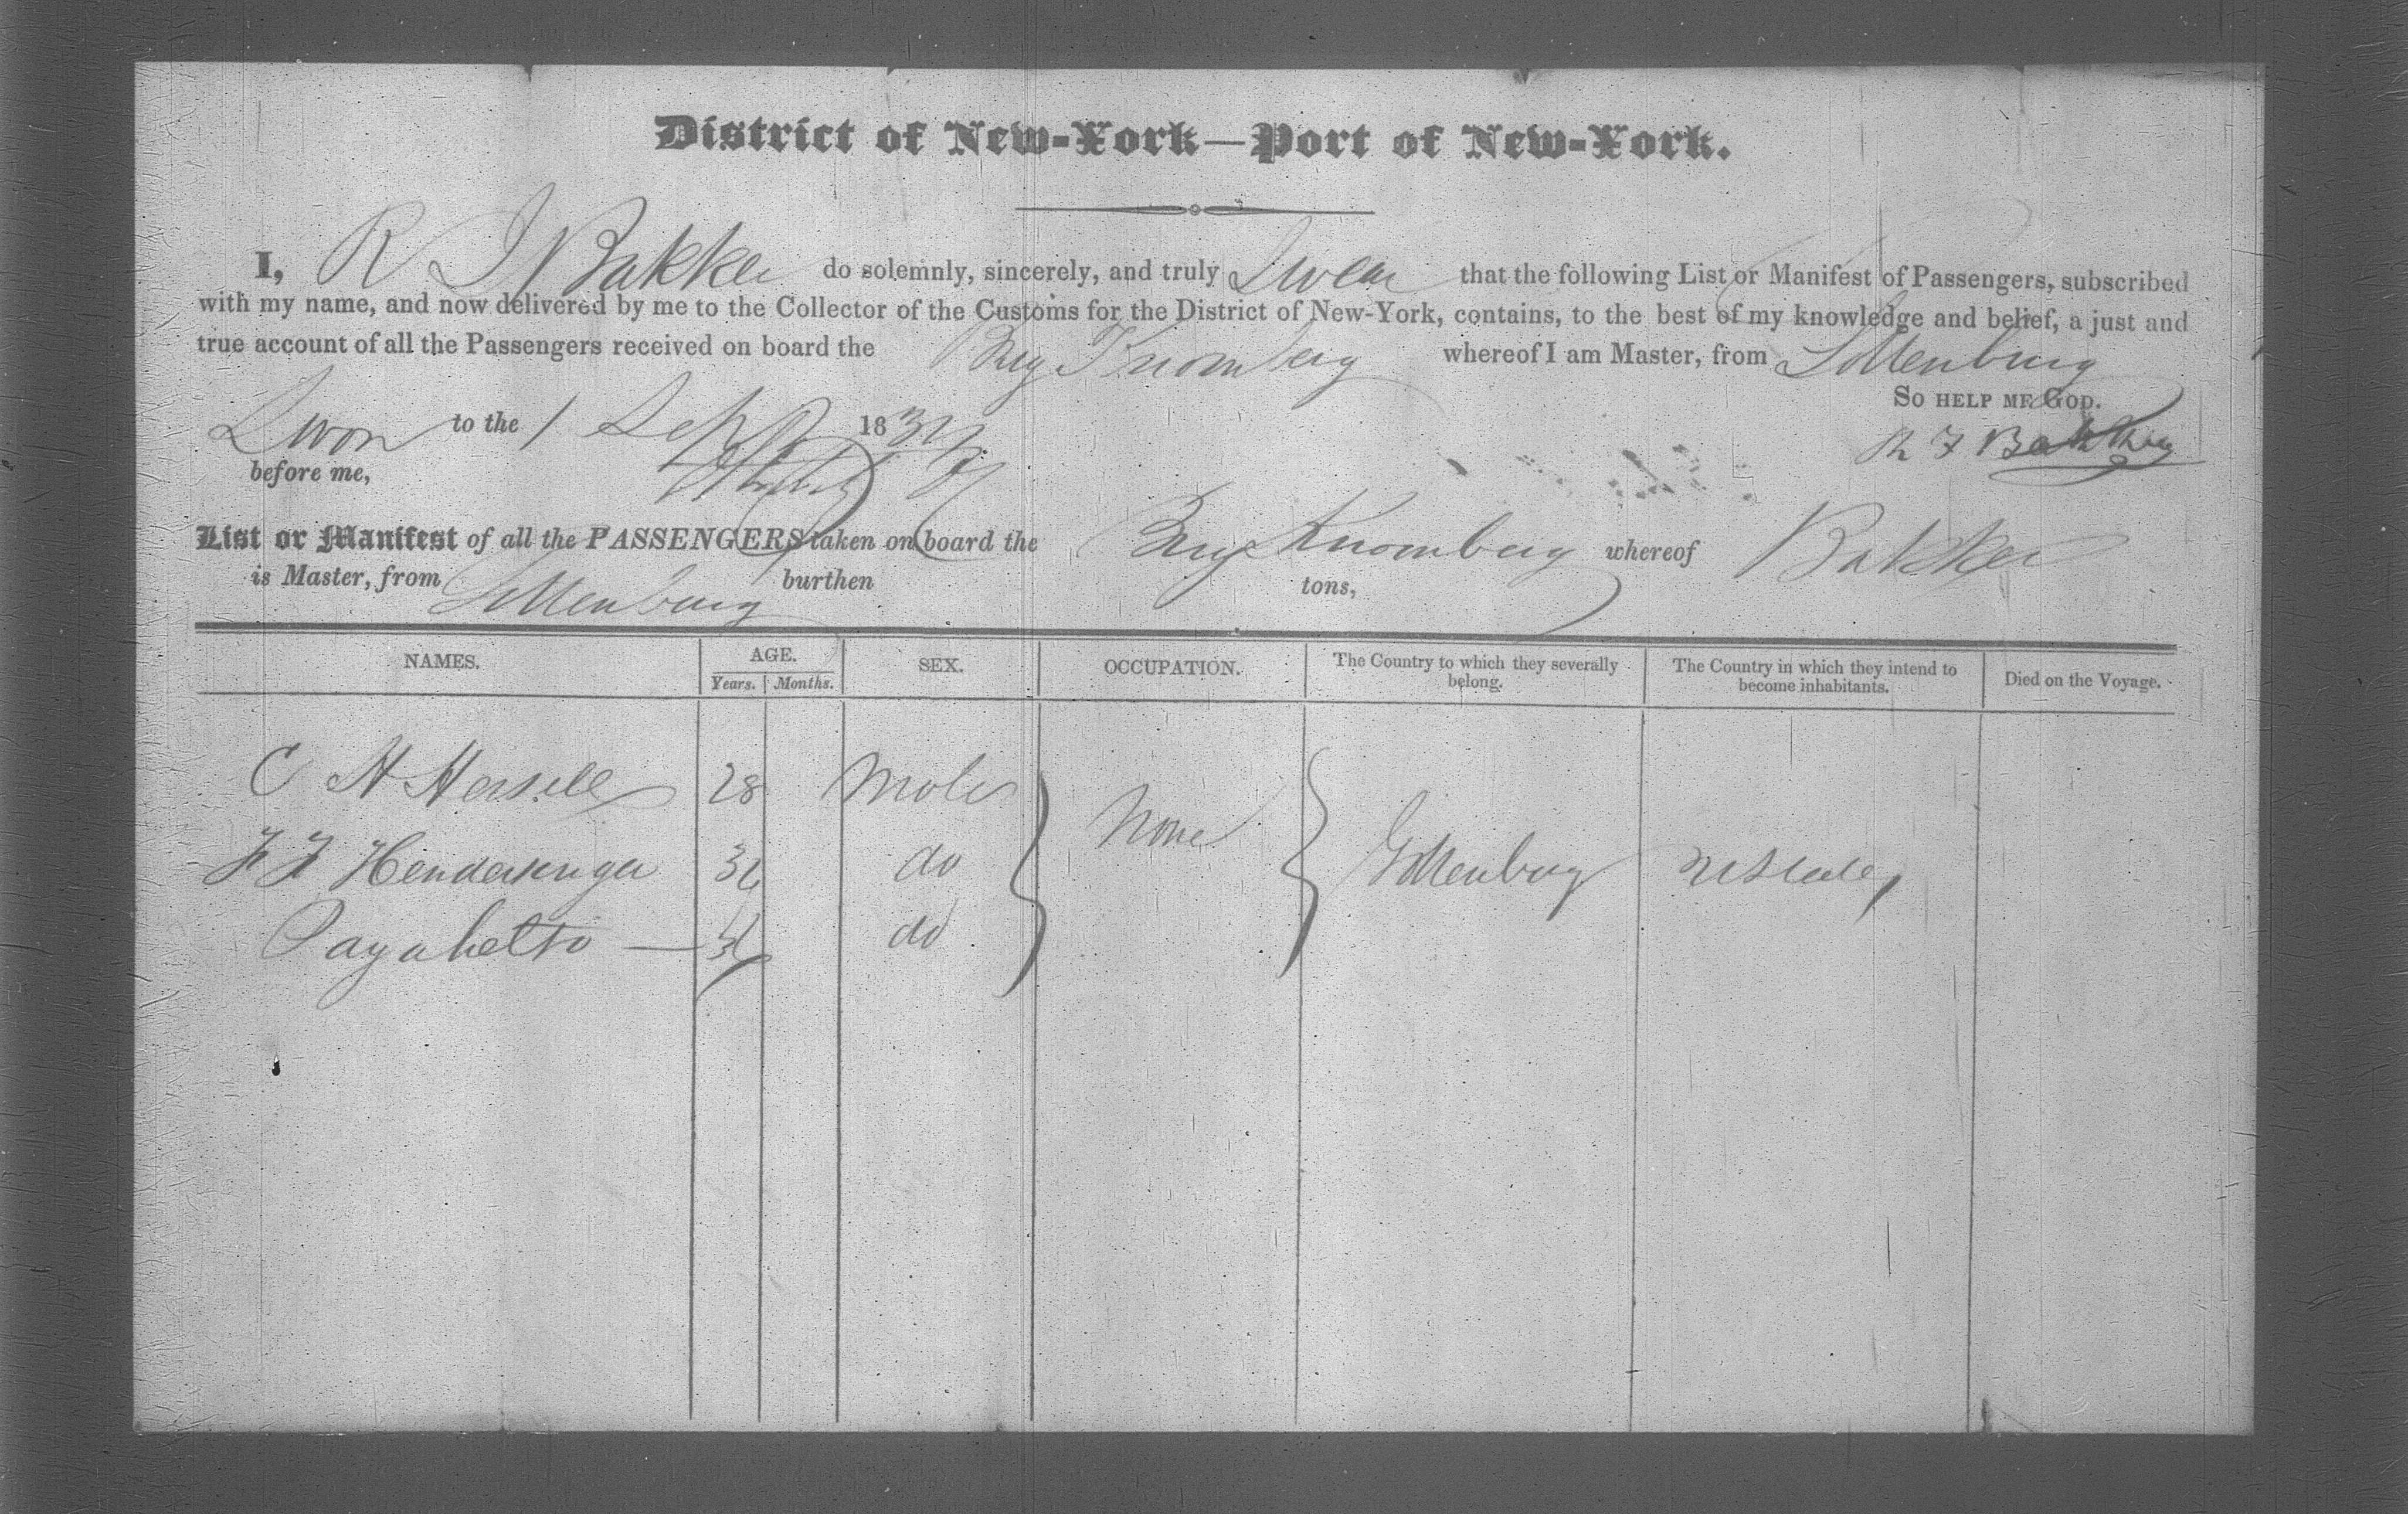 District of New-York—Port of New-York.
I, R J Bakker do solemnly, sincerely, and truly Swear that the following List or Manifest of Passengers, subscribed
with my name, and now delivered by me to the Collector of the Customs for the District of New-York, contains, to the best of my knowledge and belief, a just and
true account of all the Passengers received on board the Brig Knomberg whereof I am Master, from Gottenburg
So help me God.
Sworn to the 1 Sept 18
before me,
List or Manifest of all the PASSENGERS taken on board the Brig Knomberg whereof Bakker
is Master, from Gottenburg burthen tons,
NAMES. AGE. SEX. OCCUPATION. The Country to which they severally belong. The Country in which they intend to become inhabitants. Died on the Voyage.
Years. Months.
C H 28 Male
None
do Gottenburg
do